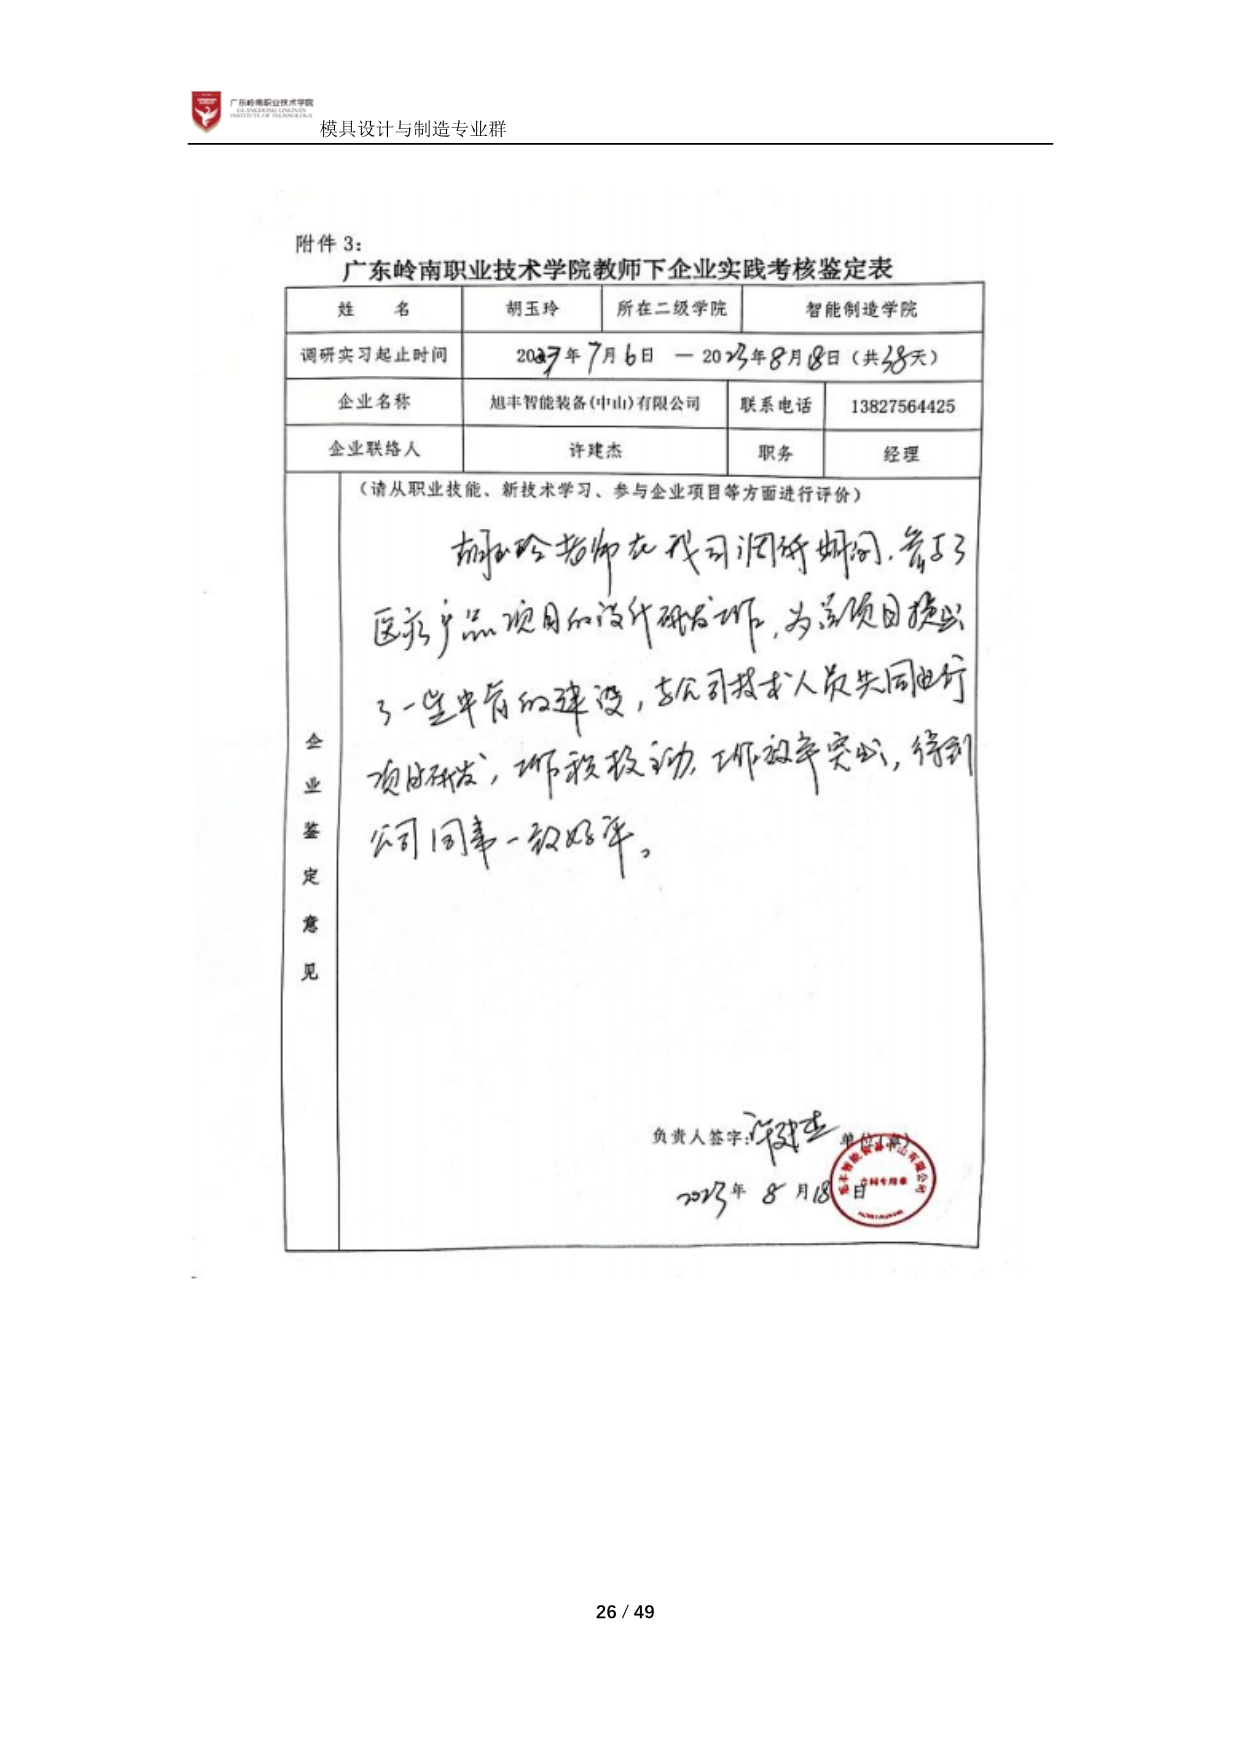 广东岭南职业技术学院
GUANGDONG LINGNAN
INSTITUTE OF TECHNOLOGY
模具设计与制造专业群
附件 3:
广东岭南职业技术学院教师下企业实践考核鉴定表
姓 名 胡玉玲 所在二级学院 智能制造学院
调研实习起止时间 2023年7月6日 — 2023年8月18日（共38天）
企业名称 旭丰智能装备(中山)有限公司 联系电话 13827564425
企业联络人 许建杰 职务 经理
企业鉴定意见
（请从职业技能、新技术学习、参与企业项目等方面进行评价）
胡玉玲老师在我司调研期间，参与了
医疗产品项目的设计研发工作，为该项目提出
了一些中肯的建议，与公司技术人员共同进行
项目研发，工作积极主动，工作效率突出，得到
公司同事一致好评。
负责人签字:许建杰 单位(章)
2023年 8 月18日
旭丰智能装备中山有限公司
合同专用章
26 / 49